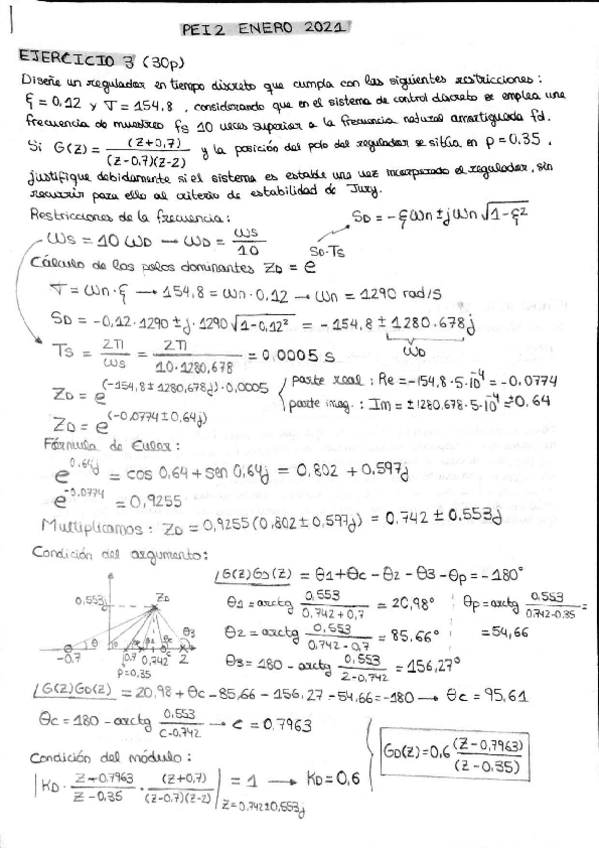 PEI2 ENERO 2021
EJERCICIO 3 (30p)
Diseñe un regulador en tiempo discreto que cumpla con las siguientes restricciones:
ξ = 0,12 y σ = 154,8, considerando que en el sistema de control discreto se emplea una
frecuencia de muestreo fs 10 veces superior a la frecuencia natural amortiguada fd.
Si G(z) = (z+0,7) / (z-0,7)(z-2) y la posición del polo del regulador se sitúa en p = 0.35,
justifique debidamente si el sistema es estable una vez incorporado el regulador, sin
recurrir para ello al criterio de estabilidad de Jury.
Restricciones de la frecuencia: SD = -ξωn ± jωn √1-ξ²
ωs = 10 ωD — ωD = ωs / 10 SD·Ts
Cálculo de los polos dominantes ZD = e
σ = ωn·ξ → 154,8 = ωn·0,12 → ωn = 1290 rad/s
SD = -0,12·1290 ± j·1290 √1-0,12² = -154,8 ± 1280.678j
Ts = 2π / ωs = 2π / 10·1280,678 = 0,0005 s ωD
ZD = e^(-154,8 ± 1280,678j)·0,0005 parte real: Re = -154,8·5·10^-4 = -0,0774
ZD = e^(-0,0774 ± 0,64j) parte imag.: Im = ±1280.678·5·10^-4 = ±0.64
Fórmula de Euler:
e^0.64j = cos 0,64 + sen 0,64j = 0,802 + 0,597j
e^-0.0774 = 0,9255
Multiplicamos: ZD = 0,9255 (0,802 ± 0,597j) = 0.742 ± 0.553j
Condición del argumento:
/G(z)GD(z) = θ1 + θc - θ2 - θ3 - θp = -180°
0,553j ZD
θ1 = arctg 0,553 / 0,742+0,7 = 20,98° θp = arctg 0,553 / 0.742-0.35 =
θ2 = arctg 0,553 / 0.742-0,7 = 85.66° = 54,66
θ3 = 180 - arctg 0,553 / 2-0,742 = 156,27°
-0.7 0.7 0,742 c 2
p=0,35
/G(z)GD(z) = 20,98 + θc - 85,66 - 156,27 - 54,66 = -180 → θc = 95,61
θc = 180 - arctg 0,553 / c-0.742 → c = 0.7963
Condición del módulo:
GD(z) = 0,6 (z-0,7963) / (z-0,35)
| KD · z-0.7963 / z-0,35 · (z+0,7) / (z-0.7)(z-2) | z=0.742±0,553j = 1 → KD = 0,6